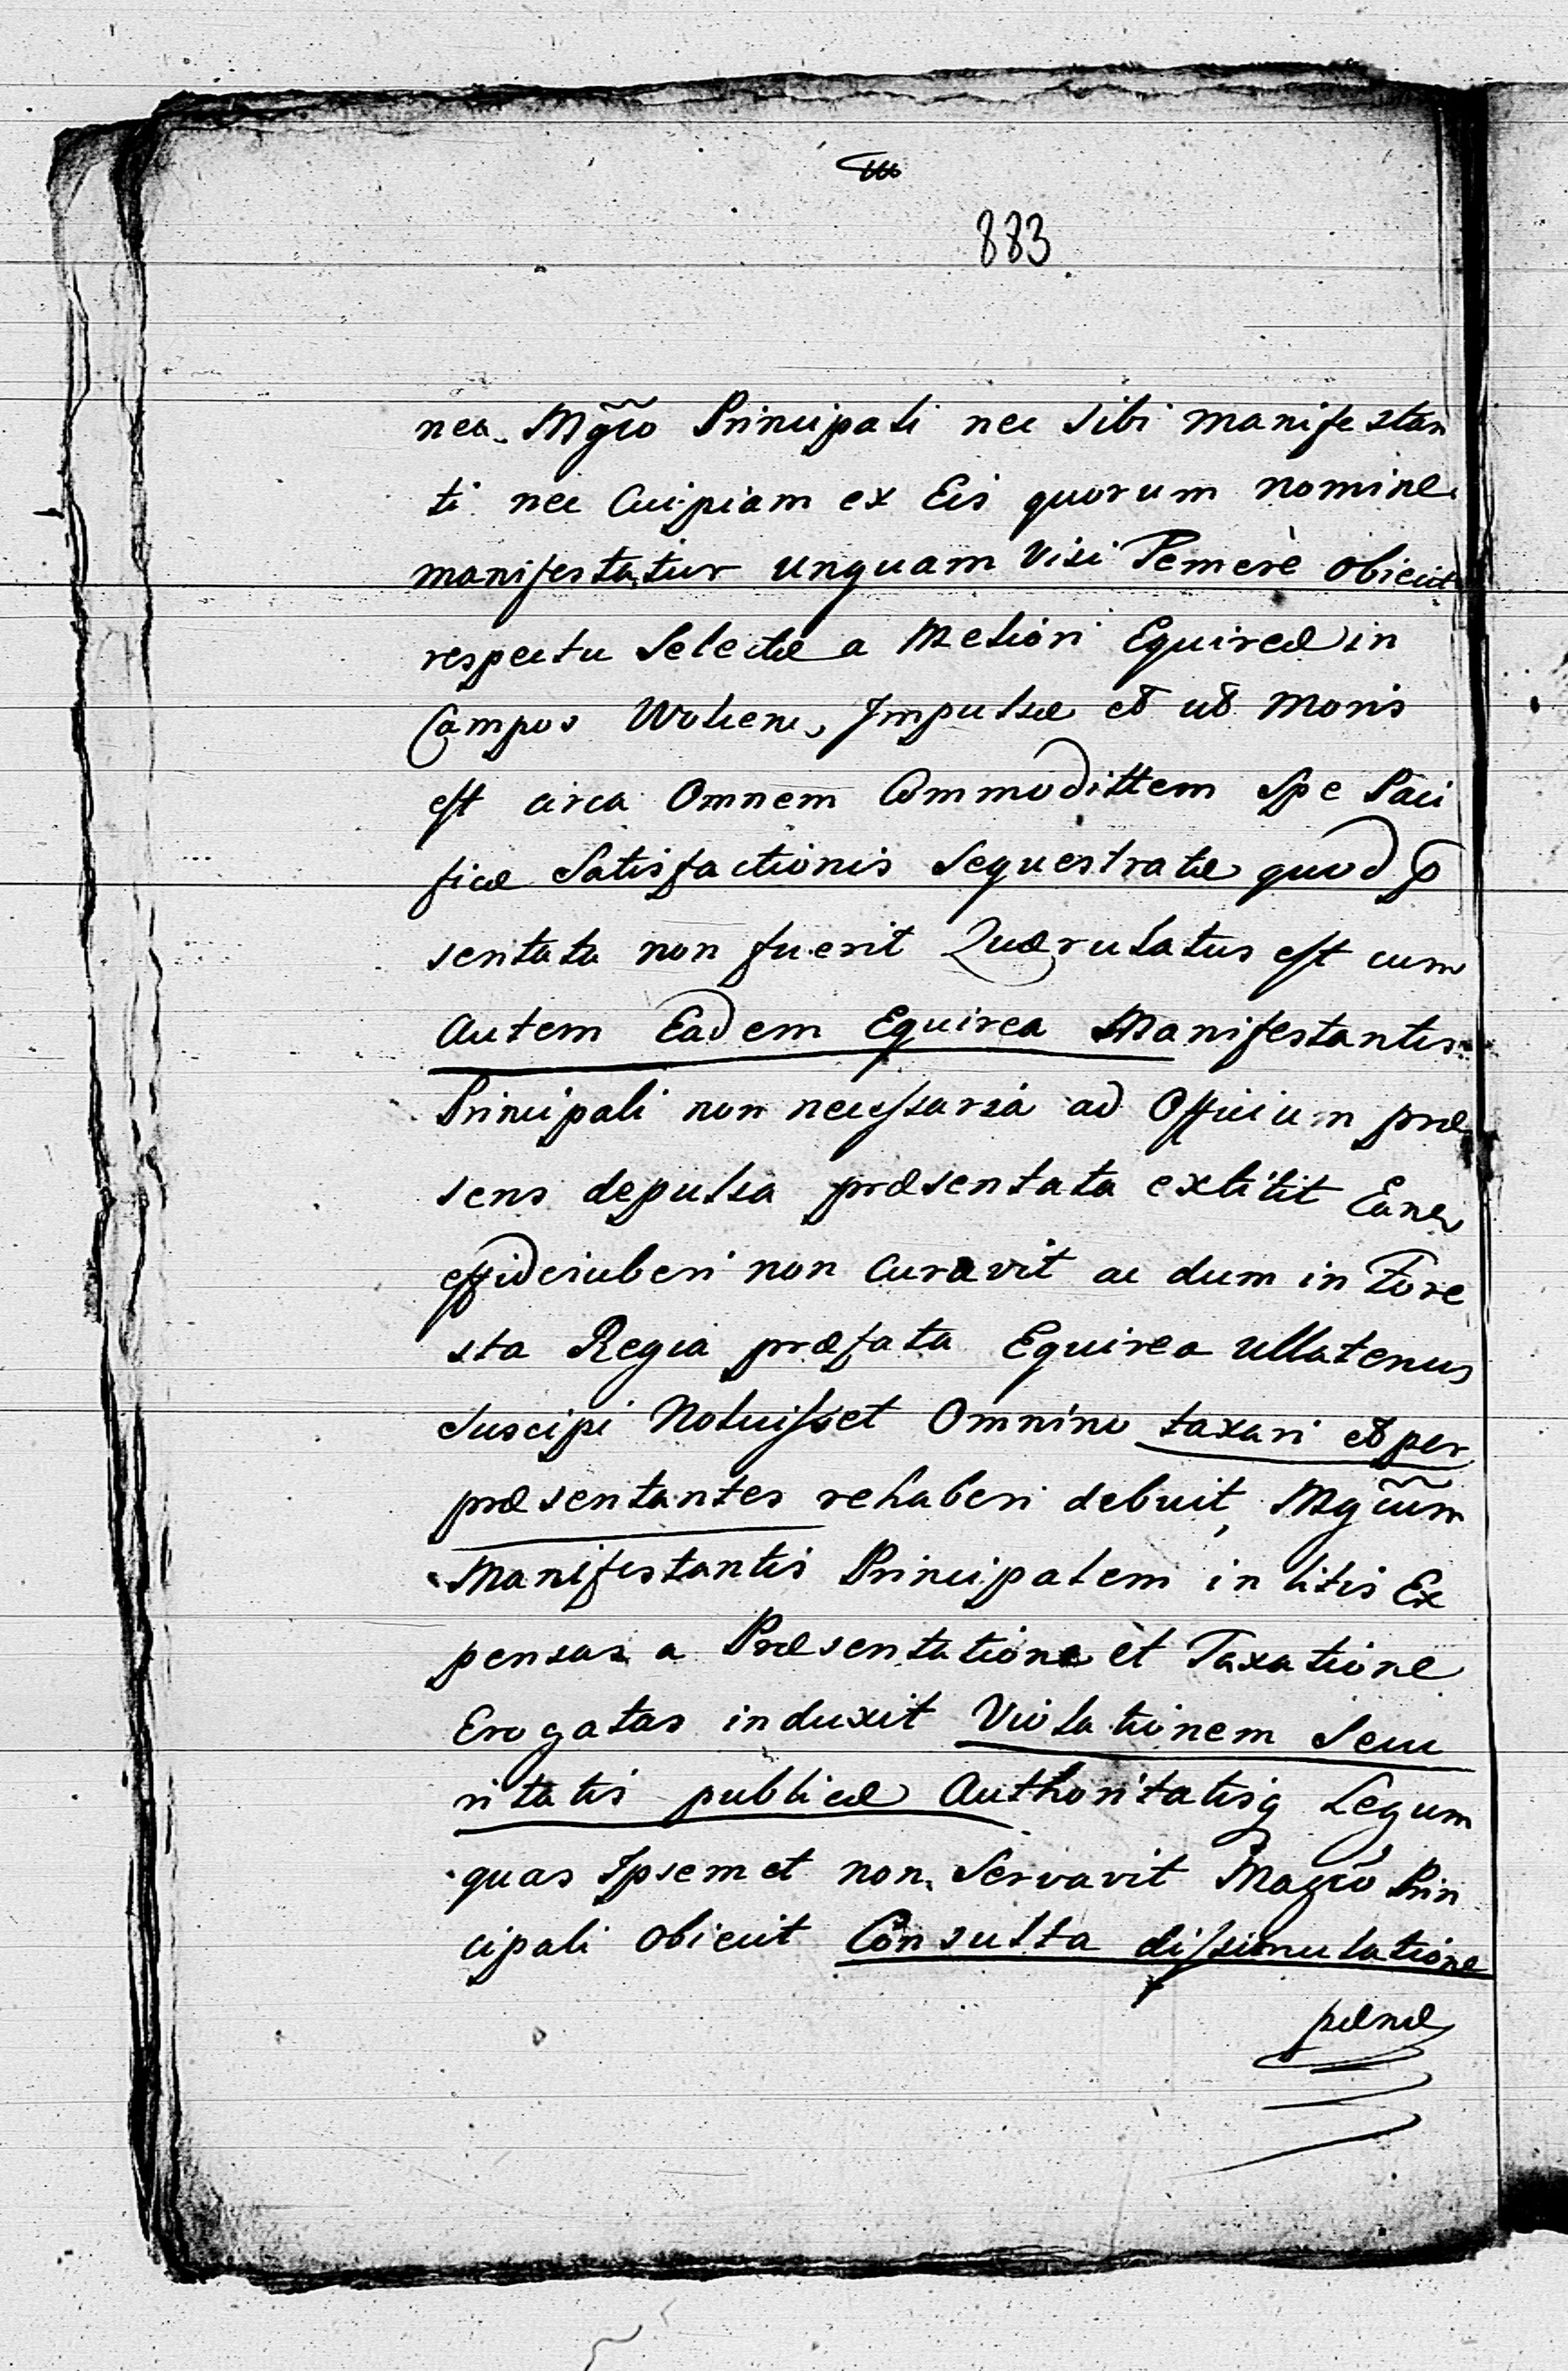 883
nea Mg̃co Principali nec Sibi manifestan
ti nec Cuipiam ex Eis quorum nomine
manifestatur unquam Visi Temerè obiecit
respectu Selectæ a Meliori Equireæ in
Campos Woliens, Impulsæ et ut Moris
est circa Omnem Commodittem Spe Paci
ficæ Satisfactionis Sequestratæ quod p
sentata non fuerit Quærulatus est cum
autem Eadem Equirea Manifestantis
Principali non necessaria ad Officium præ
sens depulsa præsentata extitit Eane
effideiuberi non Curavit ac dum in Fore
sta Regia præfata Equirea ullatenus
Suscipi Noluisset Omnino taxari et per
præsentantes rehaberi debuit, Mg̃cum
Manifestantis Principalem in litis Ex
pensas a Præsentatione et Taxatione
Erogatas induxit Violationem Secu
ritatis publicæ Authoritatisq Legum
quas Ipsemet non Servavit Magco Prin
cipali obiecit Consulta dissimulatione
pænæ